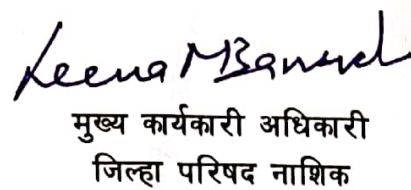 Leena M Bansod
मुख्य कार्यकारी अधिकारी
जिल्हा परिषद नाशिक